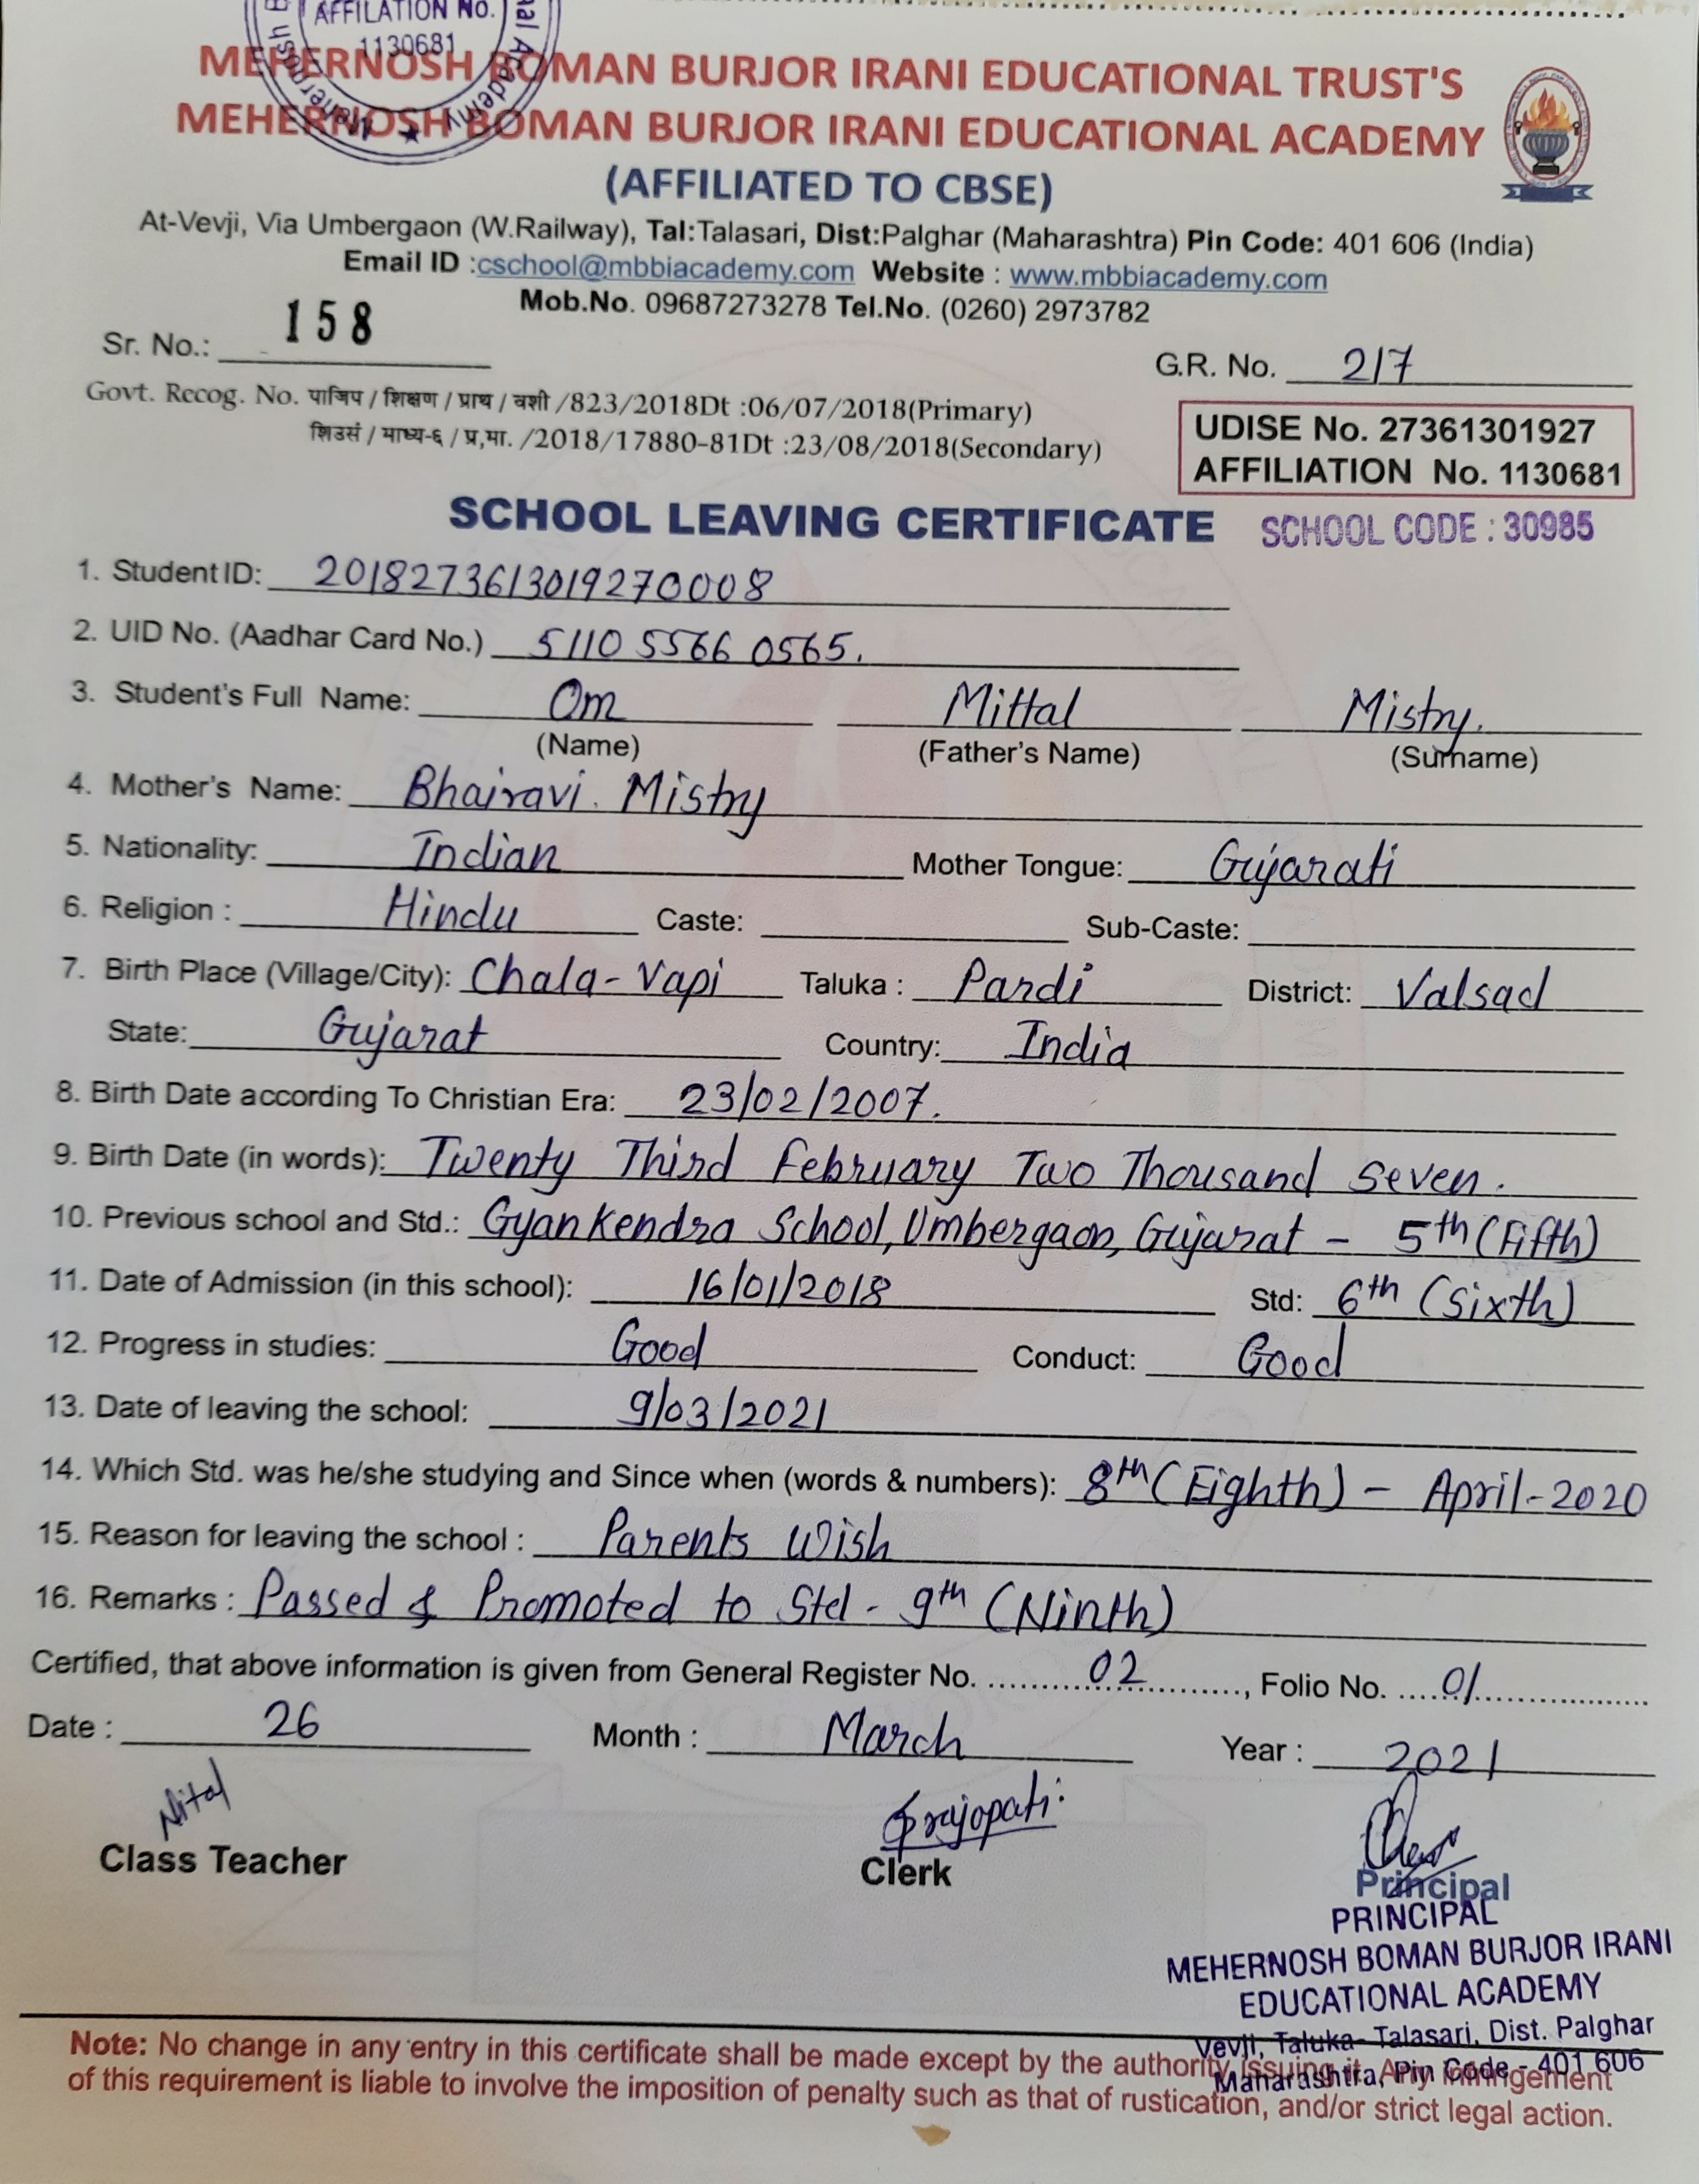 AFFILATION No.
1130681
Mehernosh B
nal Academy
MEHERNOSH BOMAN BURJOR IRANI EDUCATIONAL TRUST'S
MEHERNOSH BOMAN BURJOR IRANI EDUCATIONAL ACADEMY
(AFFILIATED TO CBSE)
At-Vevji, Via Umbergaon (W.Railway), Tal:Talasari, Dist:Palghar (Maharashtra) Pin Code: 401 606 (India)
Email ID :cschool@mbbiacademy.com Website : www.mbbiacademy.com
Mob.No. 09687273278 Tel.No. (0260) 2973782
Sr. No.: 158
G.R. No. 217
Govt. Recog. No. पाजिप / शिक्षण / प्राथ / वशी /823/2018Dt :06/07/2018(Primary)
शिउसं / माध्य-६ / प्र,मा. /2018/17880-81Dt :23/08/2018(Secondary)
UDISE No. 27361301927
AFFILIATION No. 1130681
SCHOOL LEAVING CERTIFICATE SCHOOL CODE : 30985
1. Student ID: 2018273613019270008
2. UID No. (Aadhar Card No.) 5110 5566 0565.
3. Student's Full Name: Om Mittal Mistry.
(Name) (Father's Name) (Surname)
4. Mother's Name: Bhairavi. Mistry
5. Nationality: Indian Mother Tongue: Gujarati
6. Religion : Hindu Caste: Sub-Caste:
7. Birth Place (Village/City): Chala-Vapi Taluka : Pardi District: Valsad
State: Gujarat Country: India
8. Birth Date according To Christian Era: 23/02/2007.
9. Birth Date (in words): Twenty Third February Two Thousand Seven.
10. Previous school and Std.: Gyan Kendra School, Umbergaon, Gujarat - 5th (Fifth)
11. Date of Admission (in this school): 16/01/2018 Std: 6th (Sixth)
12. Progress in studies: Good Conduct: Good
13. Date of leaving the school: 9/03/2021
14. Which Std. was he/she studying and Since when (words & numbers): 8th (Eighth) - April-2020
15. Reason for leaving the school : Parents Wish
16. Remarks : Passed & Promoted to Std - 9th (Ninth)
Certified, that above information is given from General Register No. ......02......, Folio No. ....01......
Date : 26 Month : March Year : 2021
Nital
Prajapati.
Class Teacher Clerk Principal
PRINCIPAL
MEHERNOSH BOMAN BURJOR IRANI
EDUCATIONAL ACADEMY
Vevji, Taluka- Talasari, Dist. Palghar
Maharashtra, Pin Code - 401 606
Note: No change in any entry in this certificate shall be made except by the authority issuing it. Any infringement
of this requirement is liable to involve the imposition of penalty such as that of rustication, and/or strict legal action.